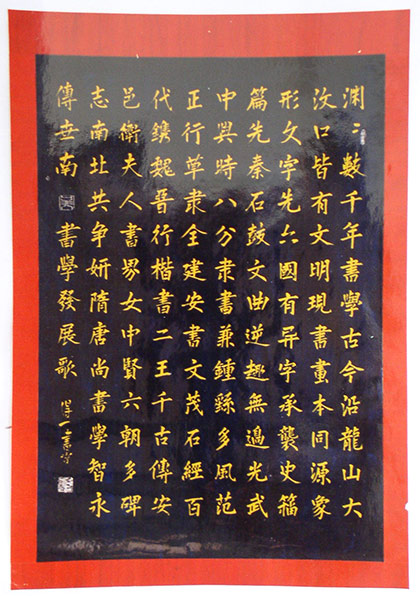 渊〻數千年書學古今沿龍山大
汶口皆有文明現書畫本同源象
形文字先六國有异字承襲史籀
篇先秦石鼓文曲逆趣無邊光武
中興時八分隶書兼鍾繇多風范
正行草隶全建安書文茂石經百
代鎸魏晉行楷書二王千古傳安
邑衛夫人書界女中賢六朝多碑
志南北共争妍隋唐尚書學智永
傳世南 書學發展歌